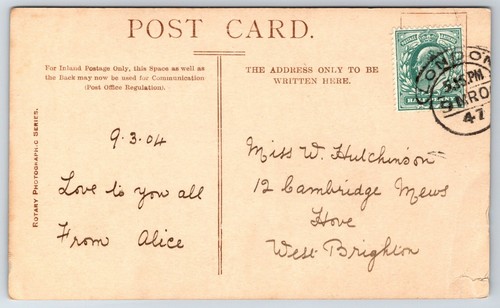 POST CARD.
For Inland Postage Only, this Space as well as
the Back may now be used for Communication
(Post Office Regulation).
THE ADDRESS ONLY TO BE
WRITTEN HERE.
LONDON
5.15 PM
47
ROTARY PHOTOGRAPHIC SERIES.
9.3.04
Love to you all
From Alice
Miss W. Hutchinson
12 Cambridge Mews
Hove
West Brighton